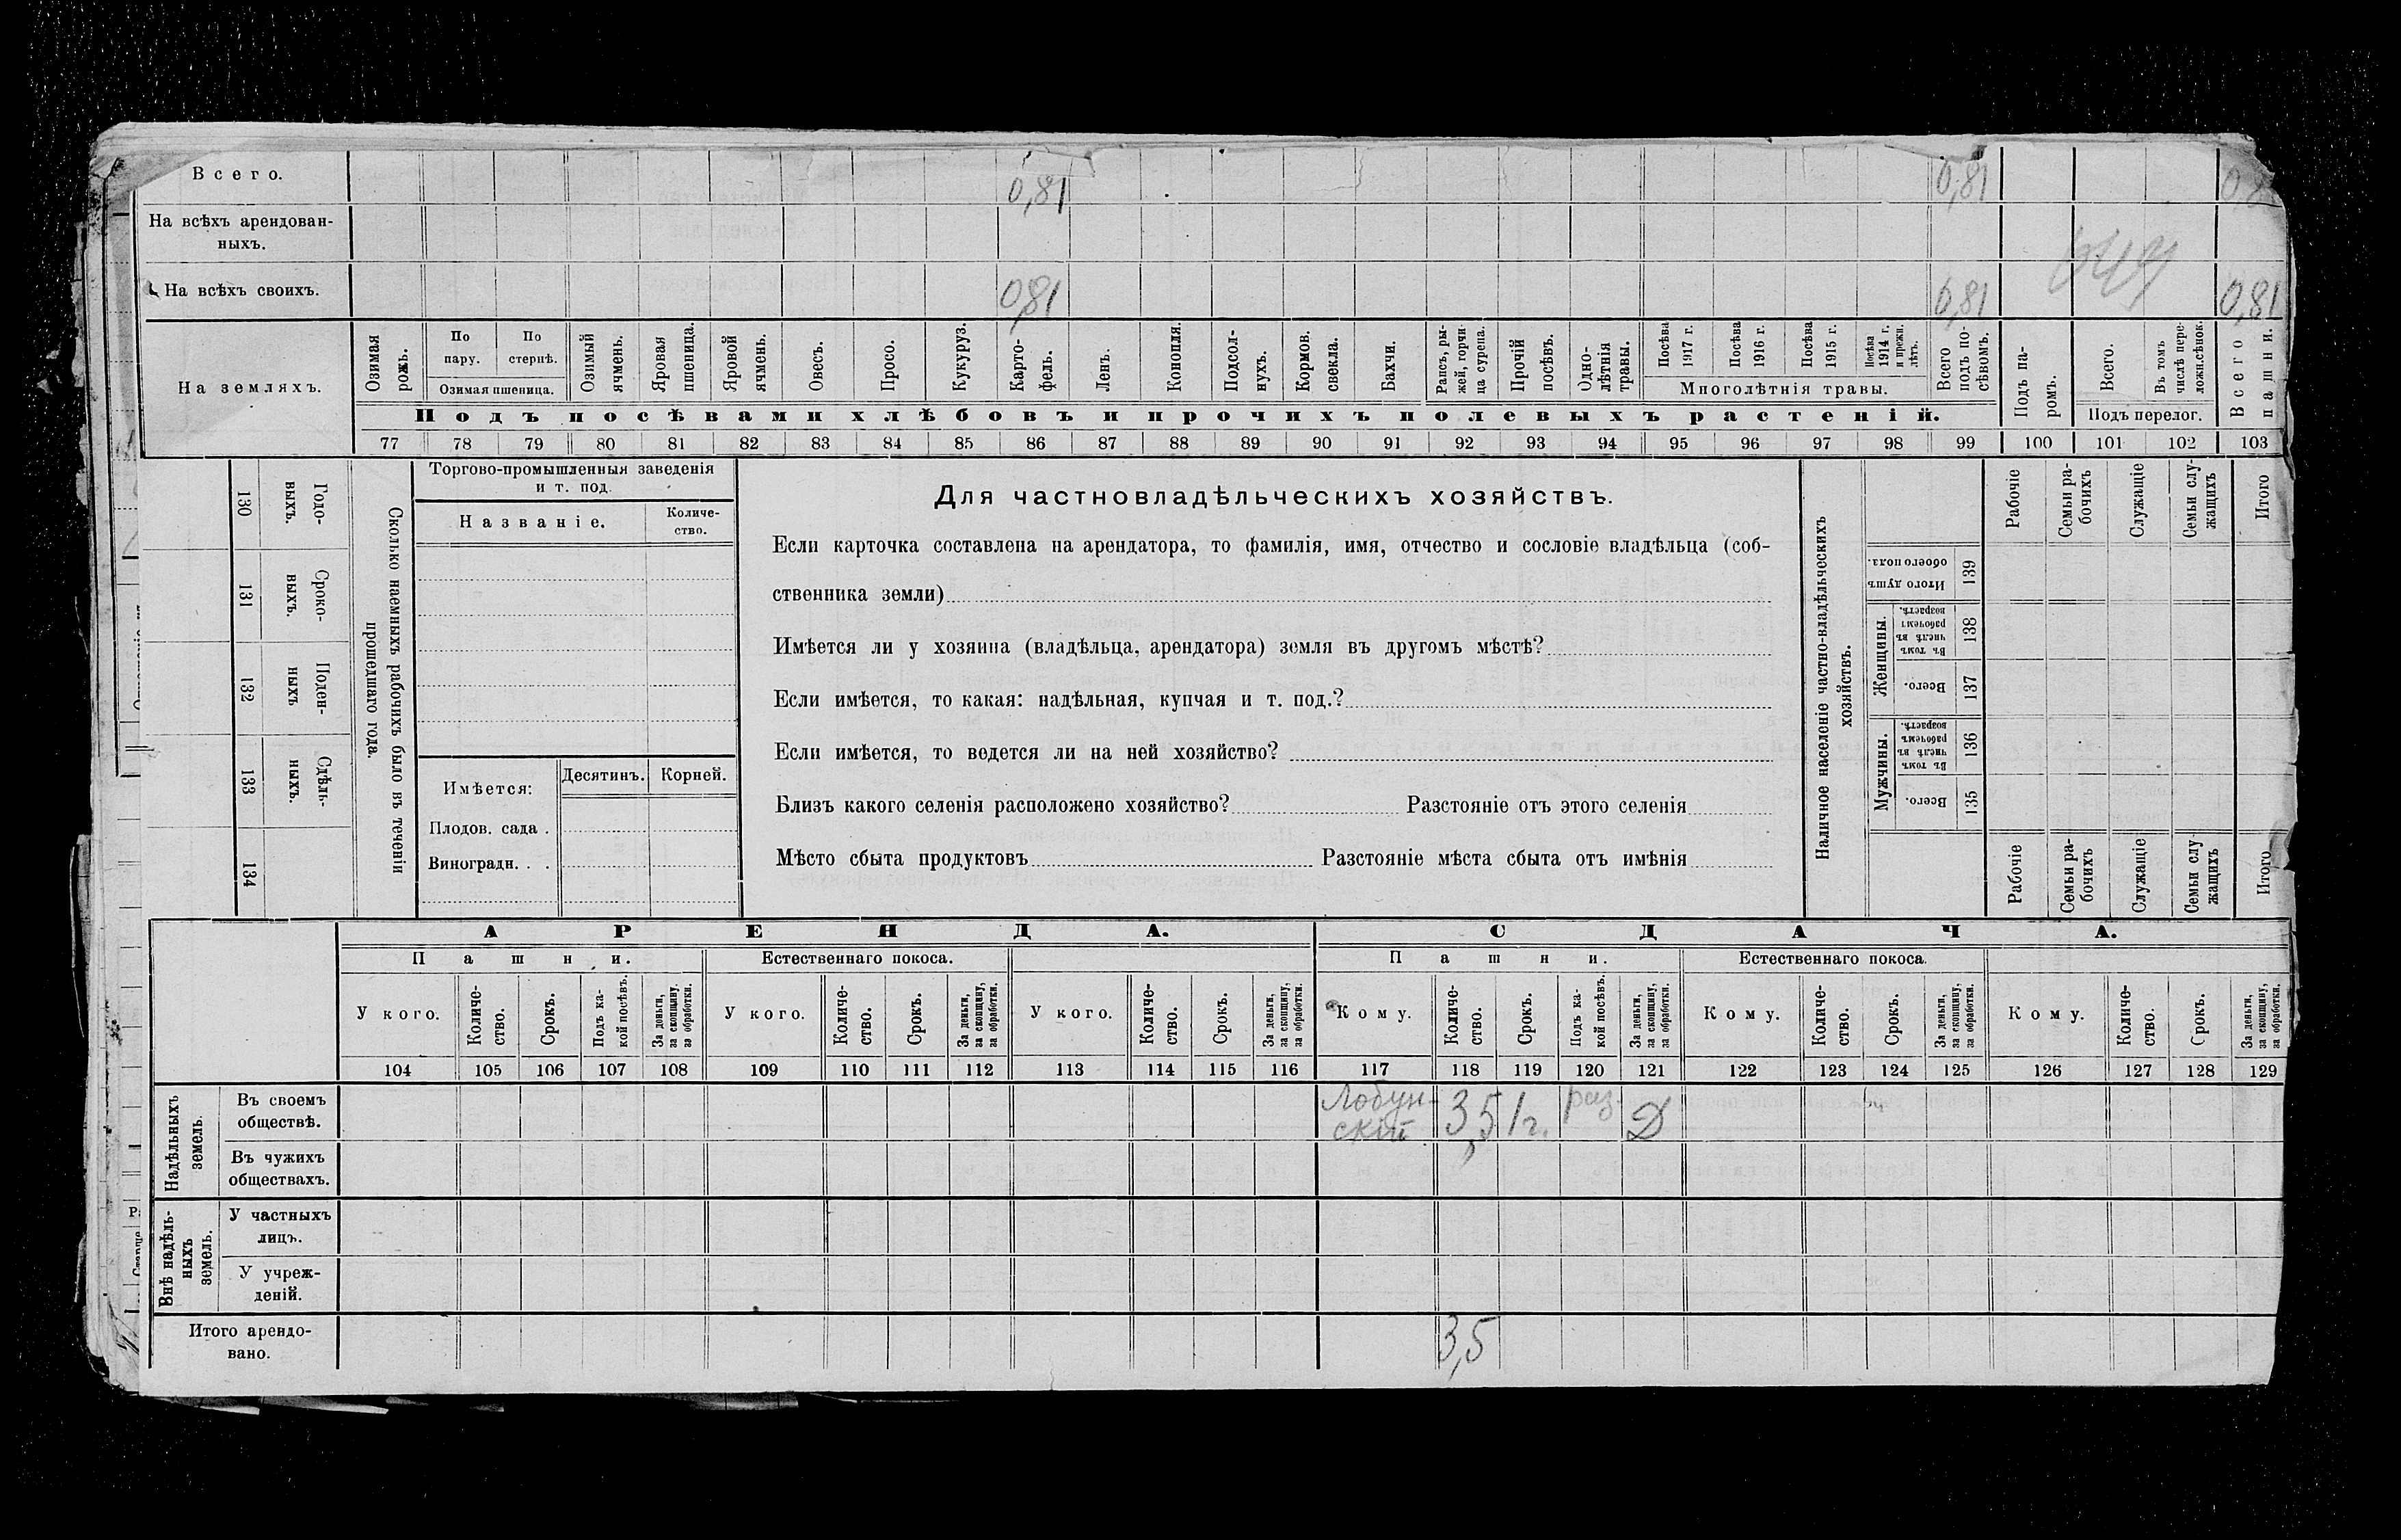 Всего. 0,81 0,81 0,8
На всѣхъ арендован-
ныхъ.
На всѣхъ своихъ. 0,81 0,81 0,81
На земляхъ.
Озимая рожь.
По пару.
По стернѣ.
Озимая пшеница.
Озимый ячмень.
Яровая пшеница.
Яровой ячмень.
Овесъ.
Просо.
Кукуруз.
Карто-
фель.
Ленъ.
Конопля.
Подсол-
нухъ.
Кормов. свекла.
Бахчи.
Рапсъ, ры-
жей, горчи-
ца сурепа.
Прочій посѣвъ.
Одно-
лѣтнія травы.
Посѣва 1917 г.
Посѣва 1916 г.
Посѣва 1915 г.
Посѣва 1914 г. и прежн. лѣтъ.
Многолѣтнія травы.
Всего подъ по-
сѣвомъ.
Подъ па-
ромъ.
Всего.
Въ томъ числѣ пере-
ложн.сѣнок.
Подъ перелог.
Всего пашни.
Подъ посѣвами хлѣбовъ и прочихъ полевыхъ растеній.
77 78 79 80 81 82 83 84 85 86 87 88 89 90 91 92 93 94 95 96 97 98 99 100 101 102 103
130 Годо-
выхъ.
131 Сроко-
выхъ.
132 Поден-
ныхъ
133 Сдѣль-
ныхъ.
134
Сколько наемныхъ рабочихъ было въ теченіи
прошедшаго года.
Торгово-промышленныя заведенія
и т. под.
Названіе.
Количе-
ство.
Имѣется: Десятинъ. Корней.
Плодов. сада .
Виноградн. . .
Для частновладѣльческихъ хозяйствъ.
Если карточка составлена на арендатора, то фамилія, имя, отчество и сословіе владѣльца (соб-
ственника земли)
Имѣется ли у хозяина (владѣльца, арендатора) земля въ другомъ мѣстѣ?
Если имѣется, то какая: надѣльная, купчая и т. под.?
Если имѣется, то ведется ли на ней хозяйство?
Близъ какого селенія расположено хозяйство? Разстояніе отъ этого селенія
Мѣсто сбыта продуктовъ Разстояніе мѣста сбыта отъ имѣнія
Наличное населеніе частно-владѣльческихъ
хозяйствъ.
Рабочіе
Семьи ра-
бочихъ
Служащіе
Семьи слу-
жащихъ
Итого
Итого душъ обоего пола. 139
Женщины.
Въ томъ числѣ въ рабочемъ возрастѣ. 138
Всего. 137
Мужчины.
Въ томъ числѣ въ рабочемъ возрастѣ. 136
Всего. 135
Рабочіе
Семьи ра-
бочихъ
Служащіе
Семьи слу-
жащихъ
Итого
АРЕНДА. СДАЧА.
Пашни. Естественнаго покоса. Пашни. Естественнаго покоса.
У кого.
Количе-
ство.
Срокъ.
Подъ ка-
кой посѣвъ.
За деньги, за скопщину, за обработки.
У кого.
Количе-
ство.
Срокъ.
За деньги, за скопщину, за обработки.
У кого.
Количе-
ство.
Срокъ.
За деньги, за скопщину, за обработки.
Кому.
Количе-
ство.
Срокъ.
Подъ ка-
кой посѣвъ.
За деньги, за скопщину, за обработки.
Кому.
Количе-
ство.
Срокъ.
За деньги, за скопщину, за обработки.
Кому.
Количе-
ство.
Срокъ.
За деньги, за скопщину, за обработки.
104 105 106 107 108 109 110 111 112 113 114 115 116 117 118 119 120 121 122 123 124 125 126 127 128 129
Надѣльныхъ
земель.
Въ своемъ
обществѣ.
Лобун-
скій 3,5 1г. раз. Д
Въ чужихъ
обществахъ.
Внѣ надѣль-
ныхъ
земель.
У частныхъ
лицъ.
У учреж-
деній.
Итого арендо-
вано. 3,5